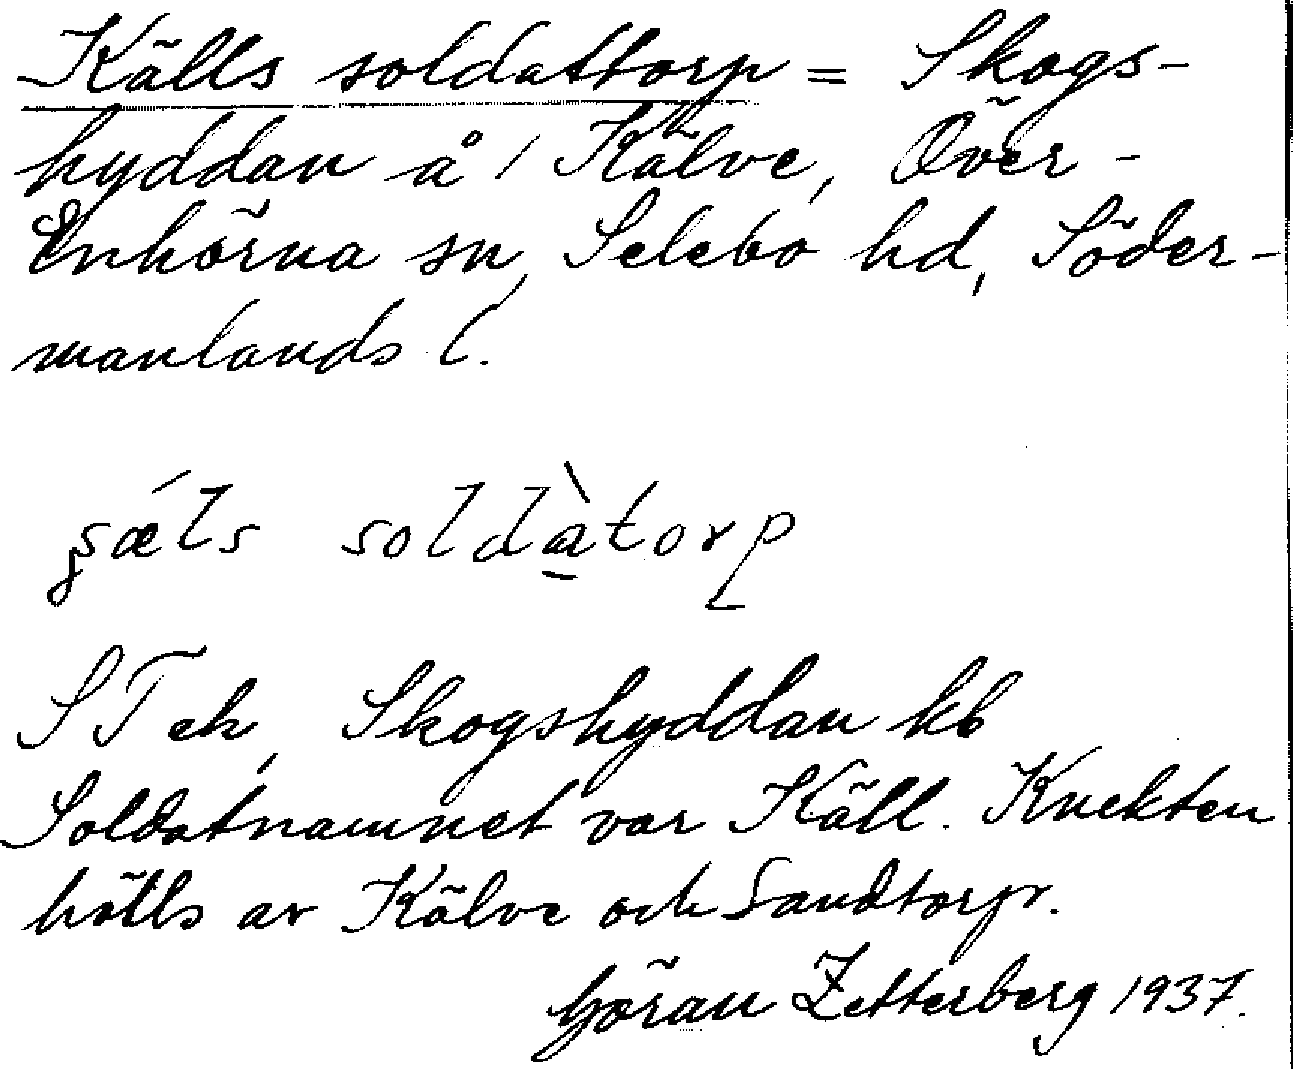 Källs soldattorp = Skogs-
hyddan å / Kälve, Över-
Enhörna sn, Selebo hd, Söder-
manlands l.
sǽls soldàtorp
STek, Skogshyddan kb
Soldatnamnet var Käll. Knekten
hölls av Kälve och Sandtorp.
Göran Zetterberg 1937.